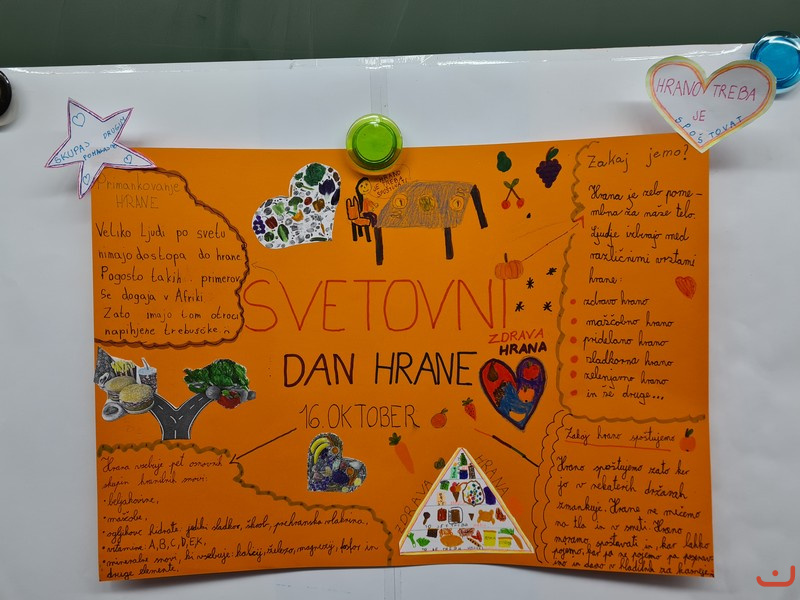 SKUPAJ DRUGIM
POMAGAJMO
HRANO TREBA
JE
SPOŠTOVAT
Primankovanje
HRANE
Veliko ljudi po svetu
nimajo dostopa do hrane
Pogosto takih primerov
se dogaja v Afriki.
Zato imajo tam otroci
napihjene trebuščke.
HRANO
JE TREBA
SPOŠTOVAT
SVETOVNI
DAN HRANE
16. OKTOBER
ZDRAVA
HRANA
Zakaj jemo?
Hrana je zelo pome-
mbna za naše telo.
Ljudje izbirajo med
različnimi vrstami
hrane:
zdravo hrano
maščobno hrano
pridelano hrano
sladkorna hrano
zelenjarno hrano
in še druge...
Hrana vsebuje pet osnovnih
skupin hranilnih snovi:
• beljakovine,
• maščobe,
• ogljikove hidrate jedilni sladkor, škrob, prehranska vlaknina,
• vitamine A,B,C,D,E,K,
• mineralne snovi, ki vsebuje: kalcij, železo, magnezij, fosfor in
druge elemente.
ZDRAVA HRANA
Zakaj hrano spoštujemo
Hrano spoštujemo zato ker
jo v nekaterih državah
zmankuje. Hrane ne mečemo
na tla in v smeti. Hrano
moramo spoštovati in, kar lahko
pojemo, kar pa ne pojemo pa pospravi-
mo in damo v hladilnik za kasneje.